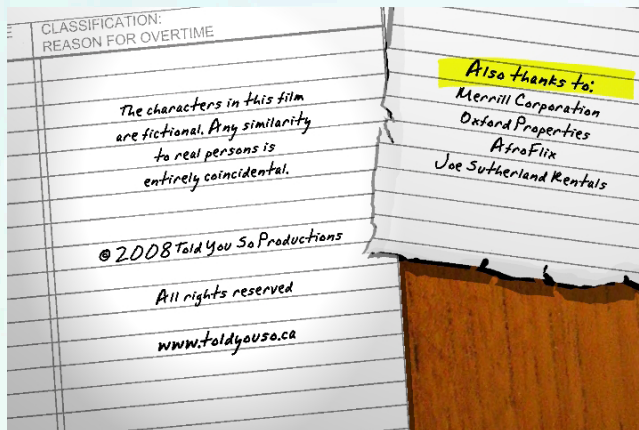 CLASSIFICATION:
REASON FOR OVERTIME
The characters in this film
are fictional. Any similarity
to real persons is
entirely coincidental.
© 2008 Told You So Productions
All rights reserved
www.toldyouso.ca
Also thanks to:
Merrill Corporation
Oxford Properties
AfroFlix
Joe Sutherland Rentals